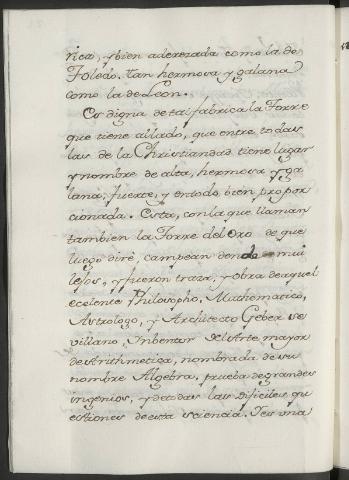 rica, y bien aderezada como la de
Toledo. tan hermosa y galana
como la de Leon.
Es digna de tal fabrica la Torre
que tiene allado, que entre todas
las de la Christiandad tiene lugar
y nombre de alta, hermosa y ga
lana, fuerte, y entodo bien propor
cionada. Esta, con la que llaman
tambien la Torre del Oro de que
luego diré, campean desde mui
lejos, y fueron traza, y obra de aquel
ecelente Philosopho, Mathematico,
Astrologo, y Architecto Geber se
villano, Inbentor del Arte mayor
de Arithmetica, nombrada de su
nombre Algebra, prueba de grandes
ingenios, y de todas las dificiles qu
estiones de esta sciencia. Ies una